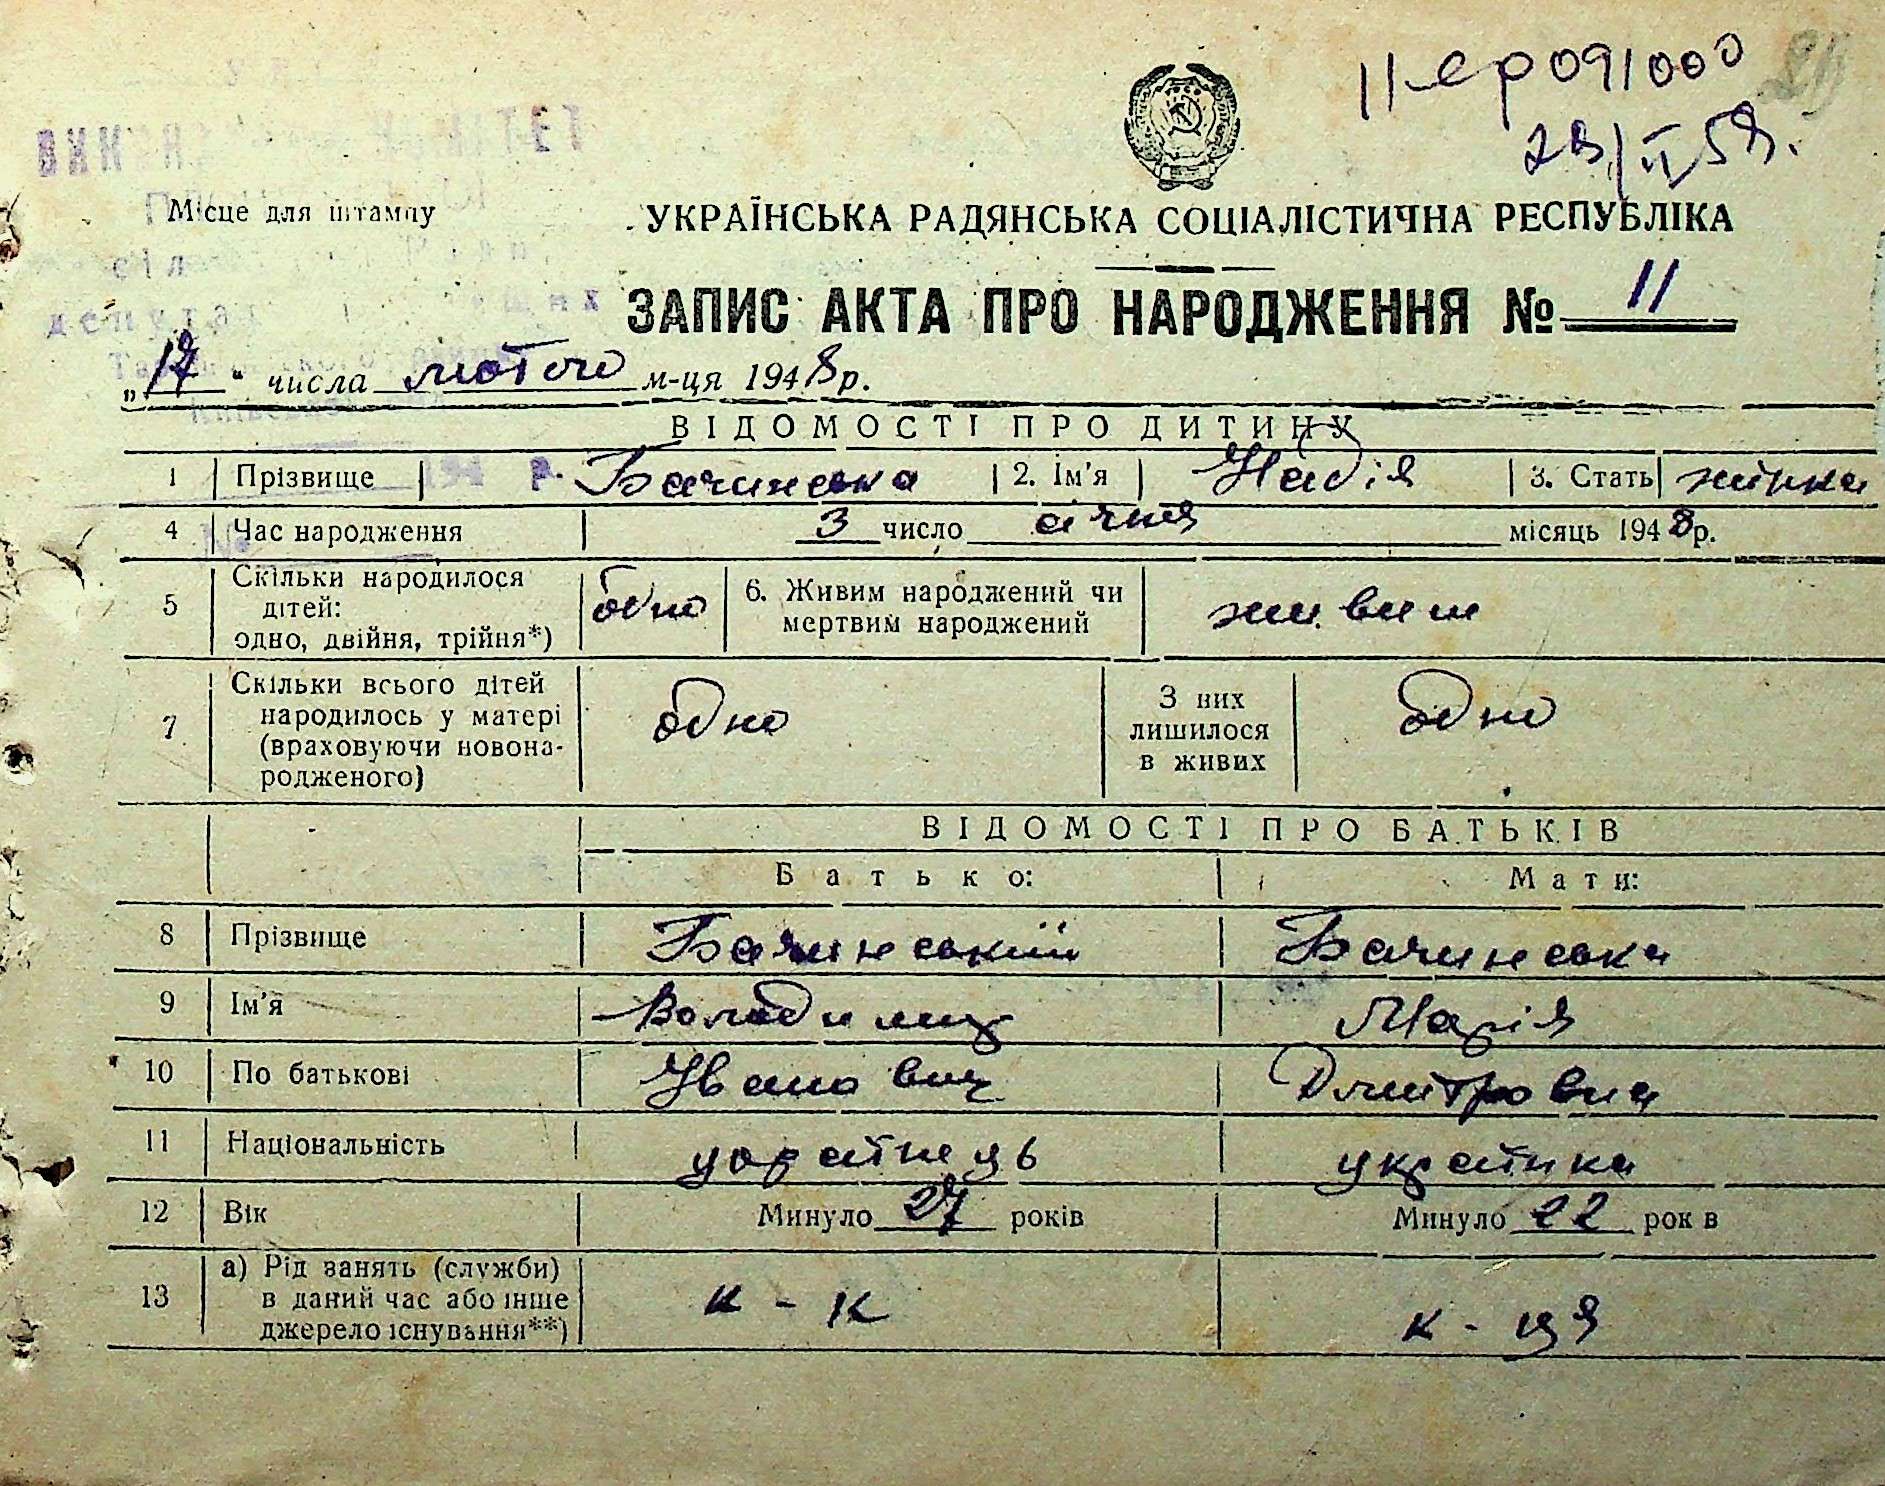 II-ер 091000
28/II 58.
Місце для штампу
УКРАЇНСЬКА РАДЯНСЬКА СОЦІАЛІСТИЧНА РЕСПУБЛІКА
ЗАПИС АКТА ПРО НАРОДЖЕННЯ № 11
„17“ числа лютого м-ця 1948 р.
ВІДОМОСТІ ПРО ДИТИНУ
1 Прізвище Бачинська 2. Ім'я Надія 3. Стать жінка
4 Час народження 3 число січня місяць 1948 р.
5 Скільки народилося дітей: одно, двійня, трійня*) одно 6. Живим народжений чи мертвим народжений живим
7 Скільки всього дітей народилось у матері (враховуючи новонародженого) одно З них лишилося в живих одно
ВІДОМОСТІ ПРО БАТЬКІВ
Батько: Мати:
8 Прізвище Бачинський Бачинська
9 Ім'я Володимир Марія
10 По батькові Іванович Дмитровна
11 Національність українець українка
12 Вік Минуло 27 років Минуло 22 рок в
13 а) Рід занять (служби) в даний час або інше джерело існування**) к-к к-ця